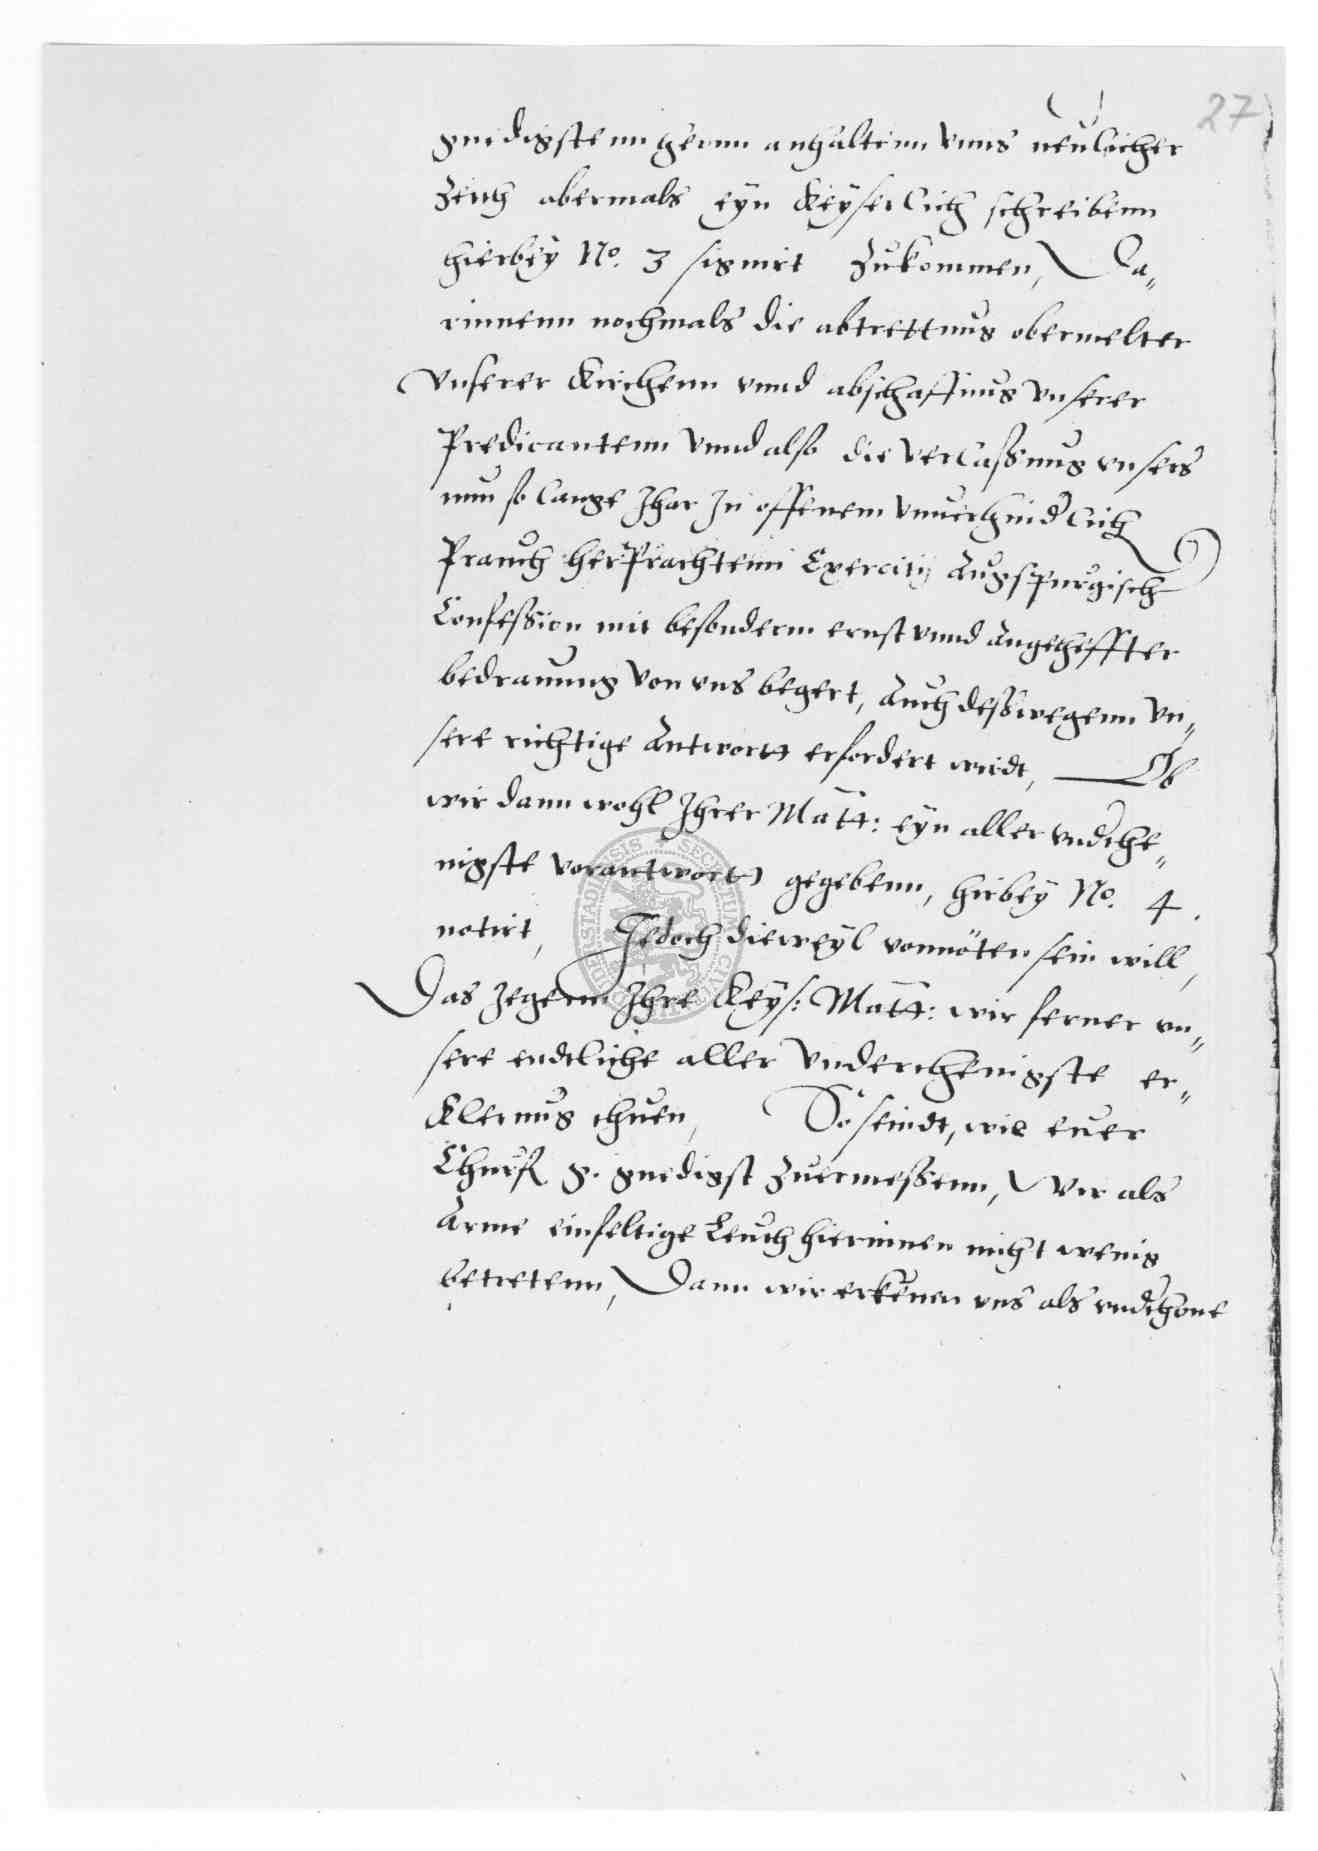 27
gnedigstenn hernn anhaltenn vnns neulicher
Zeith abermals eyn Keyserlich schreibenn
hierbey No. 3 signirt Zukommen, Da„
rinnenn nochmals die abtrettung obermelter
vnserer Kirchenn vnnd abschaffung vnserer
Predicantenn vnnd also die verlassung vnsers
nun so lange Jhar Jn offenem vnuerhindlich
Prauch herPrachtenn Exercitij Augspurgisch
Confession mit besonderm ernst vnnd Angeheffter
bedrauung von vns begert, Auch desswegenn vn„
sere richtige Antwortt erfordert wirdt, Ob
wir dann wohl Jhrer Matt: eyn aller vndthe„
nigste vorantwortt gegebenn, hirbey No. 4.
notirt, Jedoch dieweyl vonnöten sein will,
Das Jegenn Jhre Keys: Matt: wir ferner vn„
sere endtliche aller vnderthenigste er„
Klerung thuen, So seindt, wie euer
Churf g. gnedigst Zuermessenn, Wir als
Arme einfeltige Leuth hierinnen nicht wenig
betretenn, Dann wir erkenen vns als vndthone